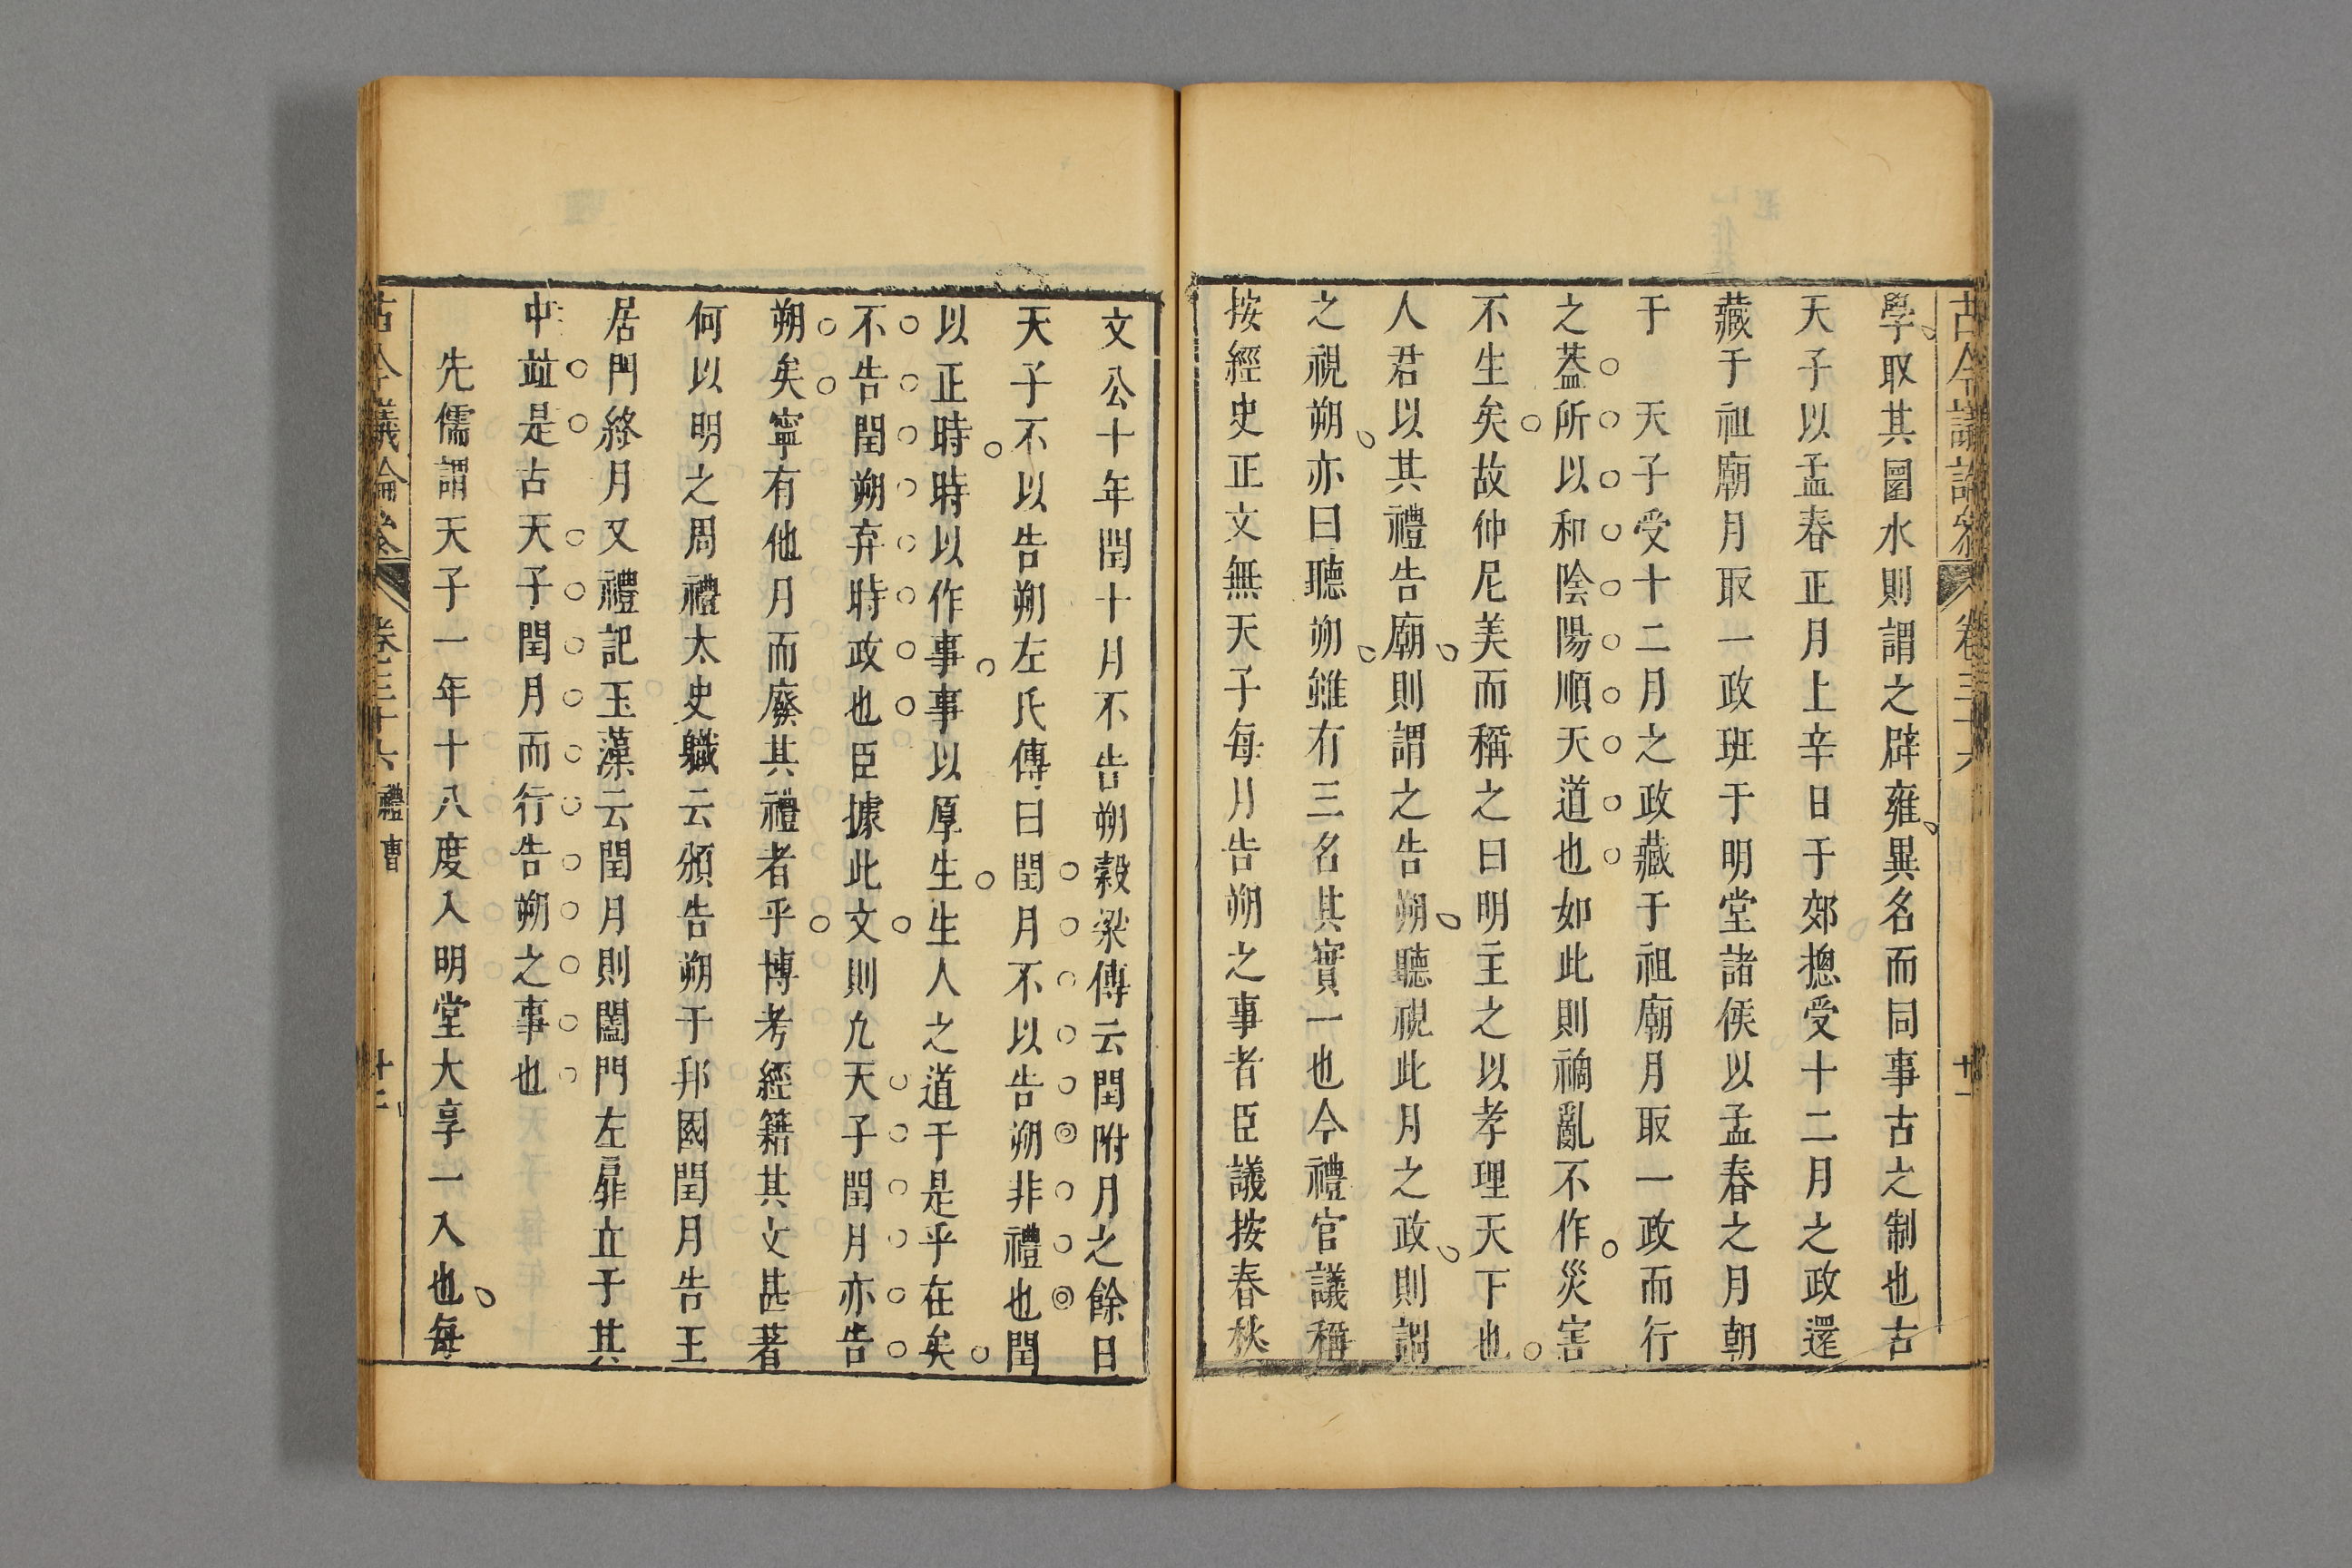 古今議論參
卷三十六
十二
學取其圜水則謂之辟雍異名而同事古之制也古
天子以孟春正月上辛日于郊摠受十二月之政還
藏于祖廟月取一政班于明堂諸侯以孟春之月朝
于　天子受十二月之政藏于祖廟月取一政而行
之蓋所以和陰陽順天道也如此則禍亂不作災害
不生矣故仲尼美而稱之曰明王之以孝理天下也
人君以其禮告廟則謂之告朔聽視此月之政則謂
之視朔亦曰聽朔雖有三名其實一也今禮官議稱
按經史正文無天子每月告朔之事者臣議按春秋
文公十年閏十月不告朔穀梁傳云閏附月之餘日
天子不以告朔左氏傳曰閏月不以告朔非禮也閏
以正時時以作事事以厚生生人之道于是乎在矣
不告閏朔弃時政也臣據此文則凢天子閏月亦告
朔矣寧有他月而廢其禮者乎博考經籍其文甚著
何以明之周禮太史職云頒告朔于邦國閏月告王
居門終月又禮記玉藻云閏月則闔門左扉立于其
中並是古天子閏月而行告朔之事也
先儒謂天子一年十八度入明堂大享一入也每
古今議論參
卷三十六
禮曹
十二